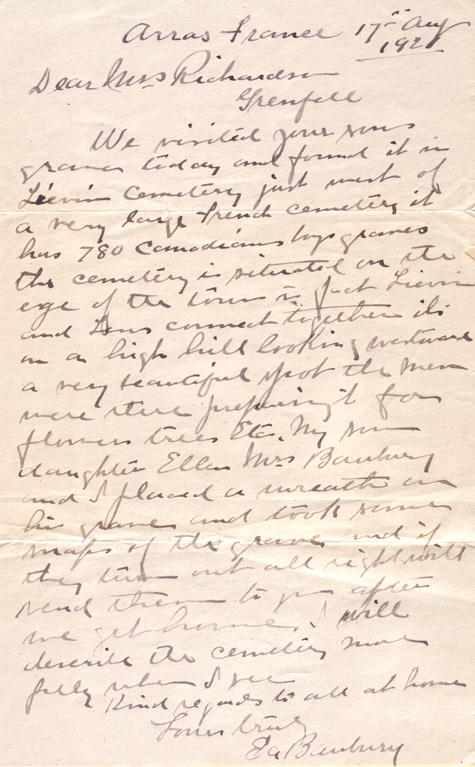 Arras France 17th Aug
192
Dear Mrs Richardson
Grenfell
We visited your sons
graves today and found it in
Lievin Cemetery just west of
a very large french cemetery it
has 780 Canadians boys graves
the cemetery is situated on the
ege of the town in fact Lievin
and Lens connect together its
on a high hill looking westward
a very beautiful spot the men
were there preparing it for
flowers trees Etc. My son
daughter Ellen Mrs Banbury
and I placed a wreath on
his grave and took some
snaps of the grave and if
they turn out all right will
send them to you after
we get home. I will
describe the cemetery more
fully when I see
Kind regards to all at home
Yours truly
Banbury